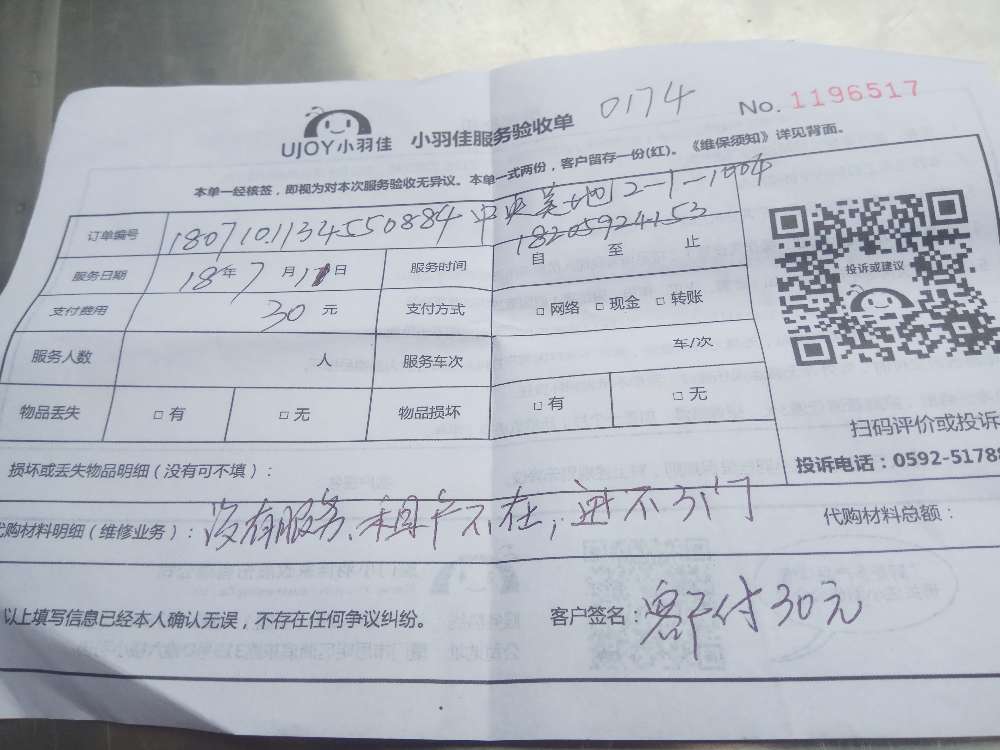 UJOY小羽佳 小羽佳服务验收单 0174 No. 1196517
本单一经核签，即视为对本次服务验收无异议。本单一式两份，客户留存一份(红)。《维保须知》详见背面。
订单编号 180710.1134550884 中央美地12-1-1904
18205924153
服务日期 18年7月11日 服务时间 自 至 止
支付费用 30元 支付方式 □网络 □现金 □转账
服务人数 人 服务车次 车/次
物品丢失 □有 □无 物品损坏 □有 □无
投诉或建议
扫码评价或投诉
投诉电话：0592-51788
损坏或丢失物品明细（没有可不填）：
代购材料明细（维修业务）：没有服务、租户不在，进不了门 代购材料总额：
以上填写信息已经本人确认无误，不存在任何争议纠纷。 客户签名：客户付30元